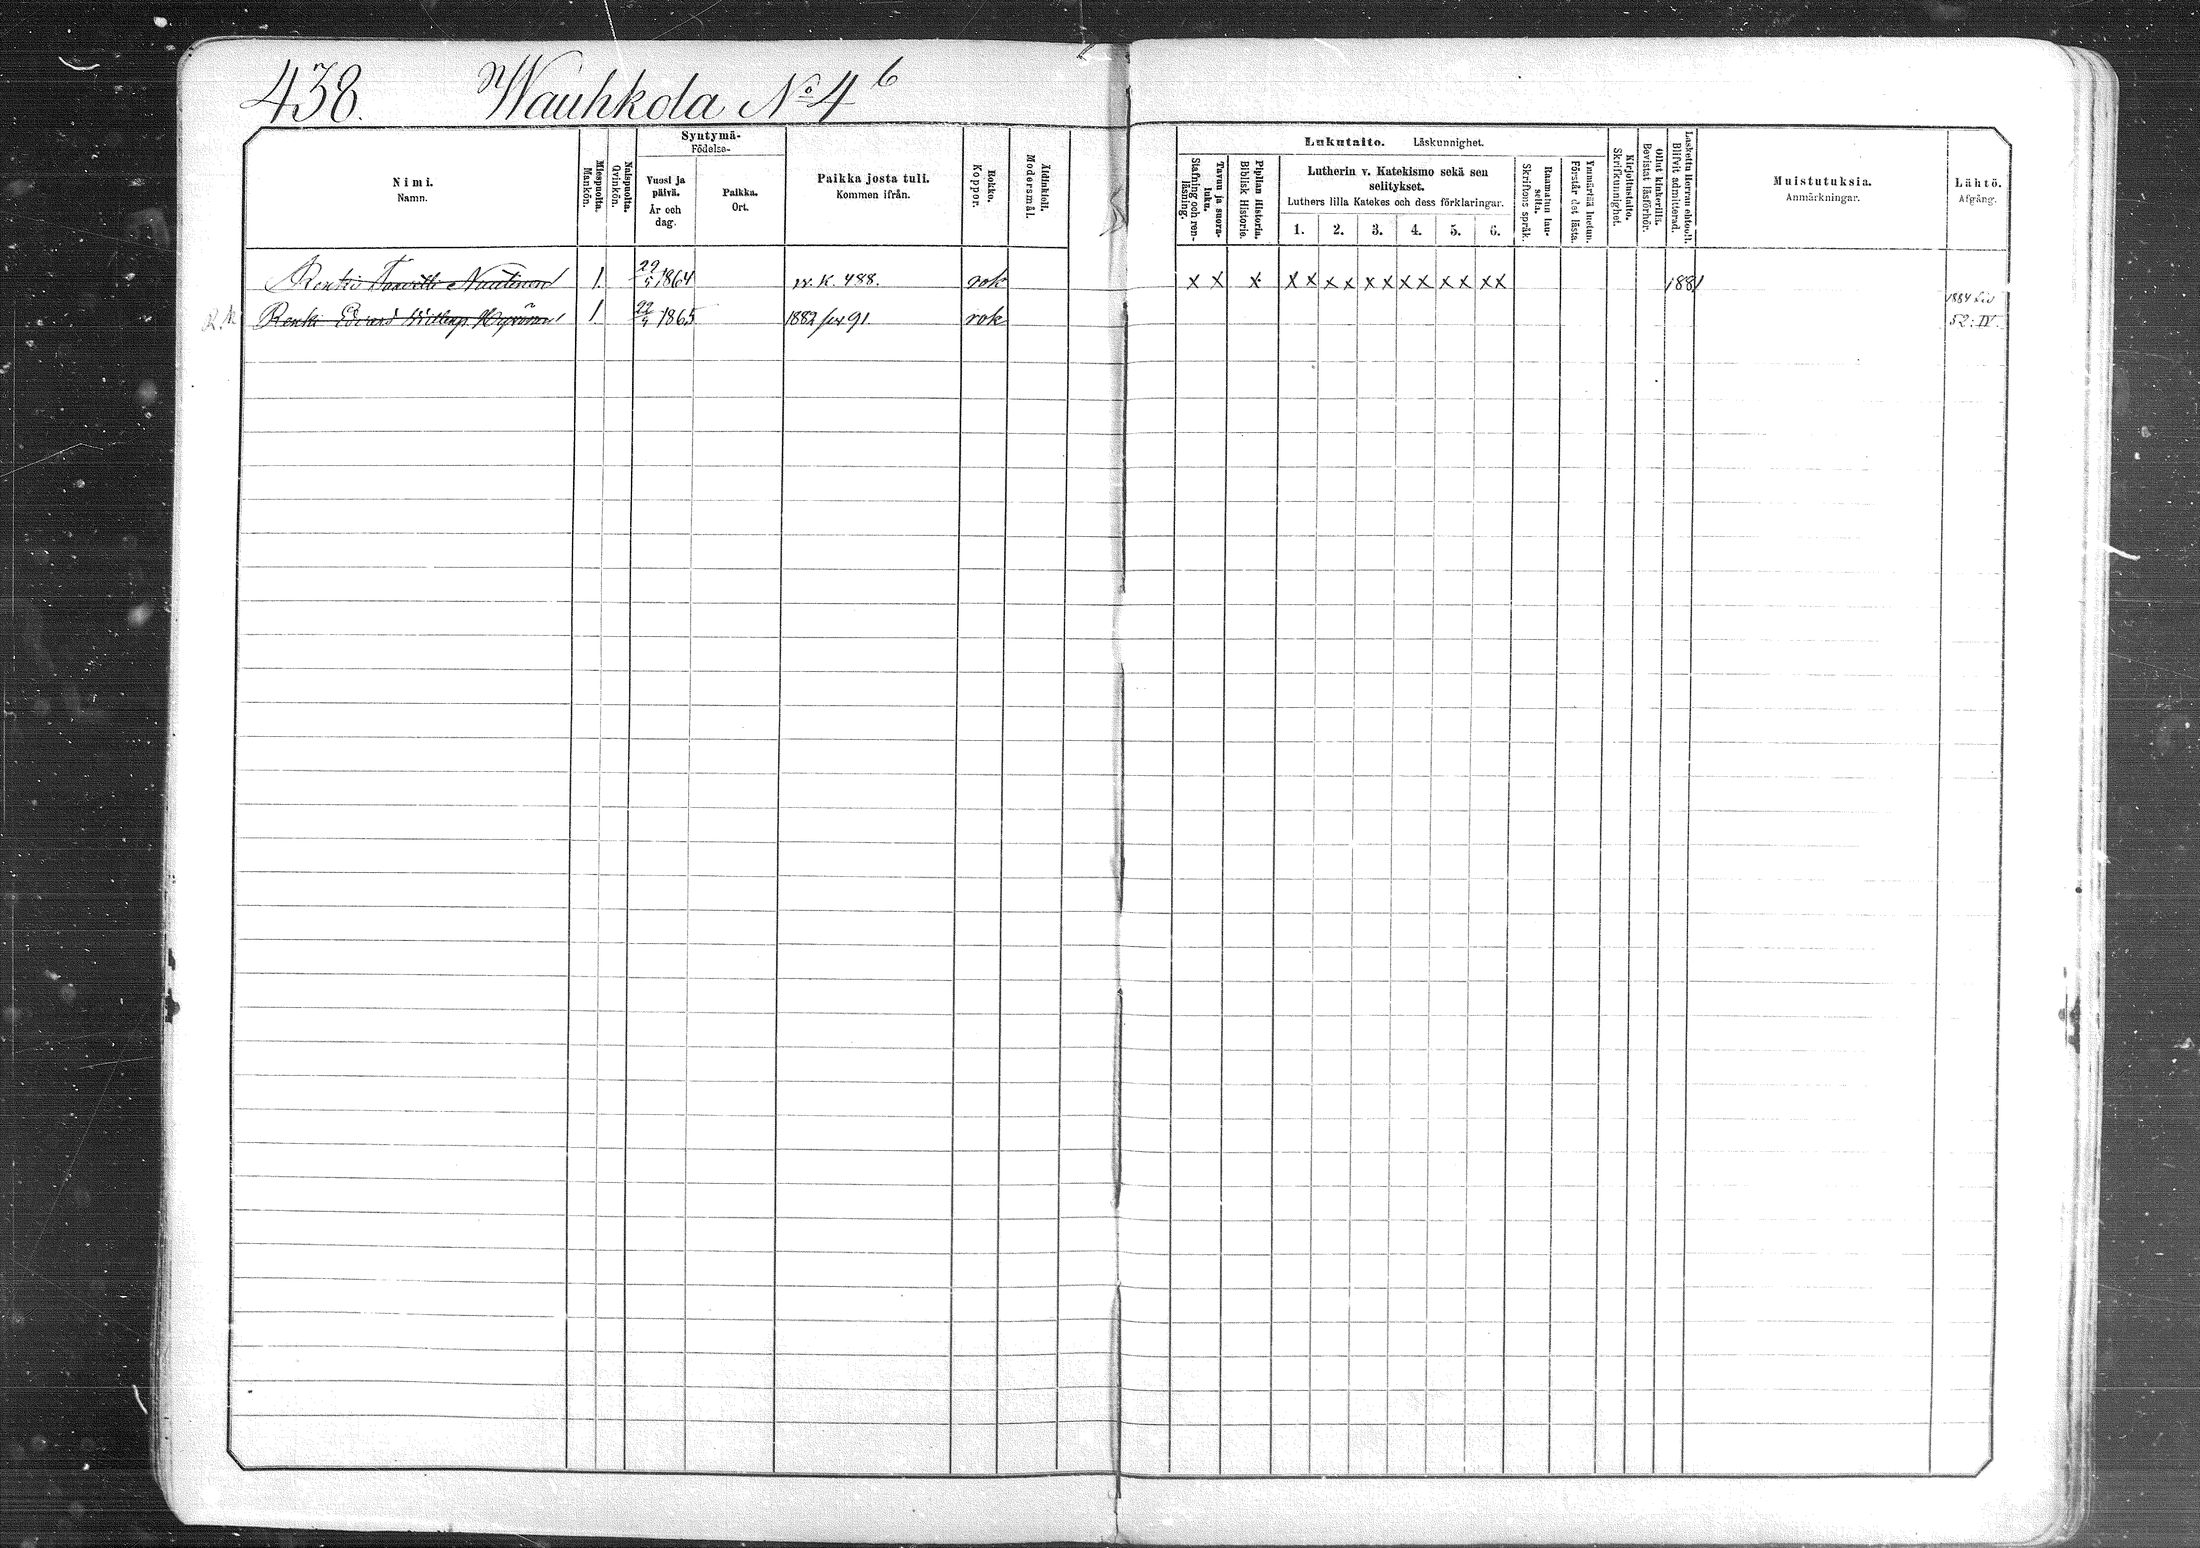 438. Wauhkola No 4 b
Nimi.
Namn.
Miespuolta.
Mankön.
Naispuolta.
Qvinkön.
Syntymä-
Födelse-
Vuosi ja
päivä.
År och
dag.
Paikka.
Ort.
Paikka josta tuli.
Kommen ifrån.
Rokko.
Koppor.
Äidinkieli.
Modersmål.
Lukutaito. Läskunnighet.
Tavuu ja suora-
luku.
Stafning och ren-
läsning.
Piplian Historia.
Biblisk Historie.
Lutherin v. Katekismo sekä sen
selitykset.
Luthers lilla Katekes och dess förklaringar.
1. 2. 3. 4. 5. 6.
Raamatun lau-
seita.
Skriftens språk.
Ymmärtää luetun.
Förstår det lästa.
Kirjoitustaito.
Skrifkunnighet.
Ollut kinkerillä.
Bevistat läsförhör.
Laskettu Herran ehtooll.
Blifvit admitterad.
Muistutuksia.
Anmärkningar.
Lähtö.
Afgång.
Renki Nuutinen 1. 1864 K. 488. rok x x x x x x x x x x x x x x x 1881
R. Renki Edvard 1. 22 1865 1882 91. rok 1884
52: IV.